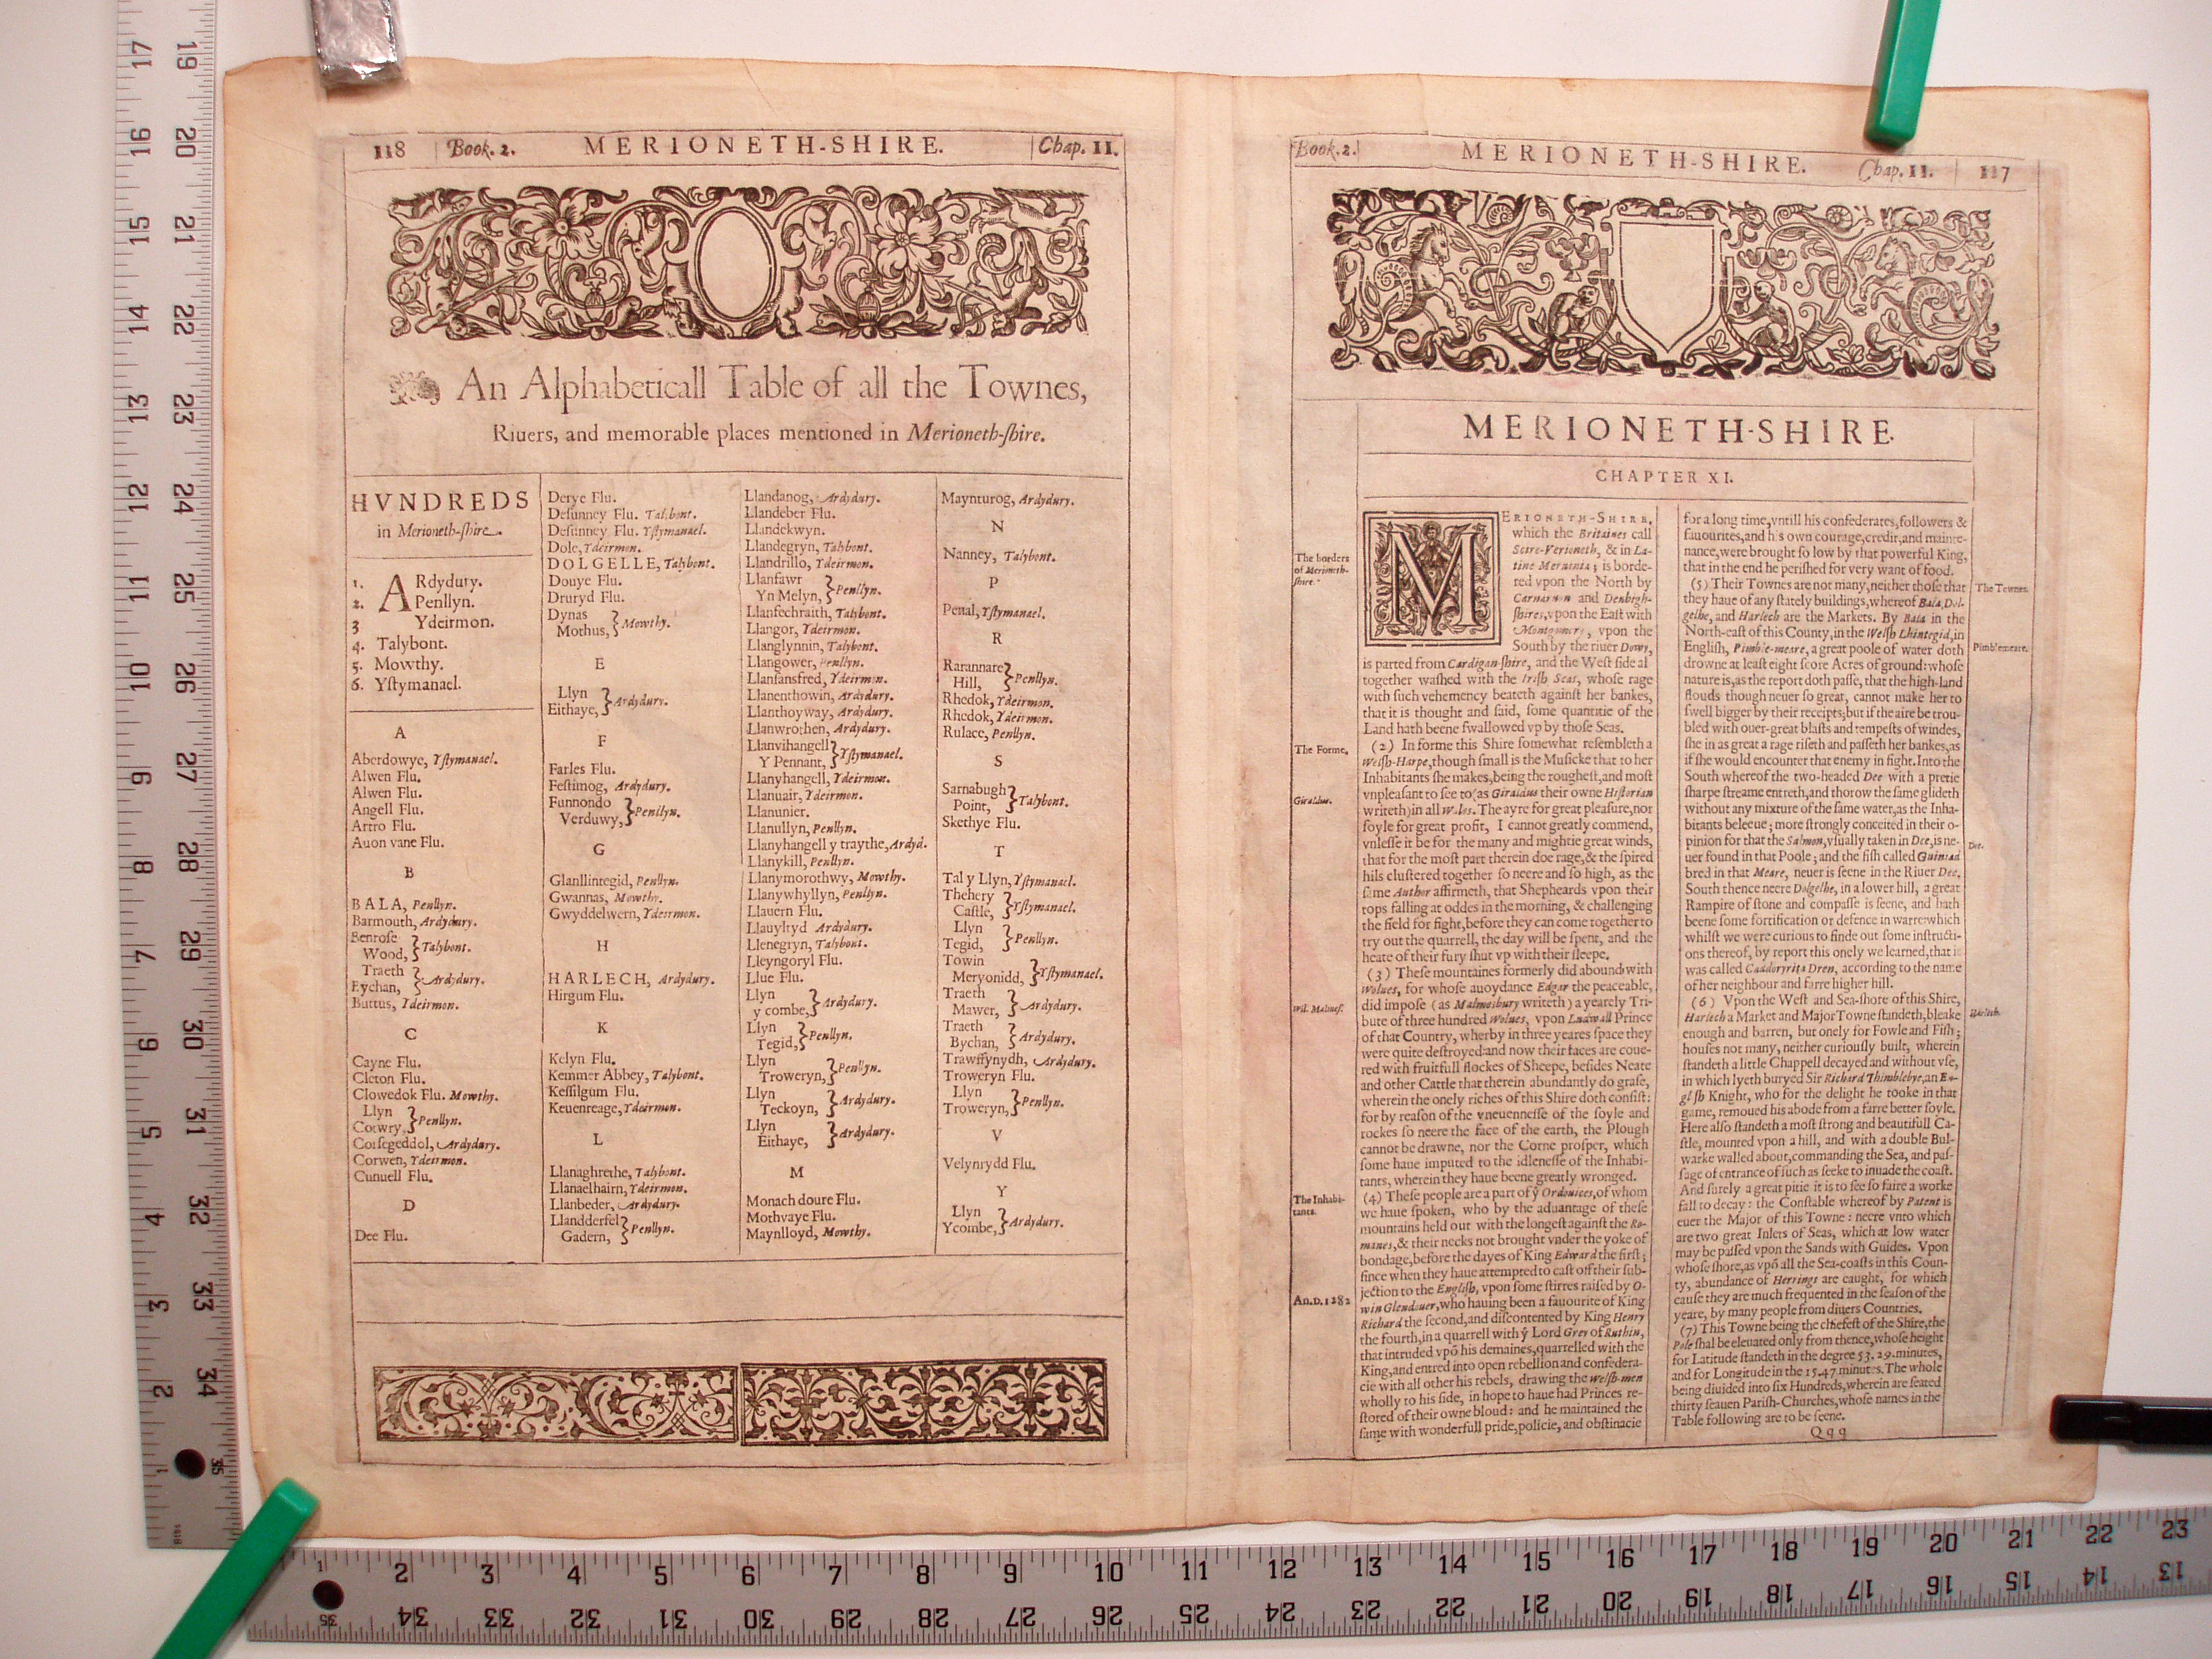 118 Book. 2. MERIONETH-SHIRE. Chap. 11.
An Alphabeticall Table of all the Townes,
Riuers, and memorable places mentioned in Merioneth-ſhire.
HVNDREDS
in Merioneth-ſhire.
1. ARdydury.
2. Penllyn.
3 Ydeirmon.
4. Talybont.
5. Mowthy.
6. Yſtymanael.
A
Aberdowye, Yſtymanael.
Alwen Flu.
Alwen Flu.
Angell Flu.
Artro Flu.
Auon vane Flu.
B
BALA, Penllyn.
Barmouth, Ardydury.
Benroſe
Wood, } Talybont.
Traeth
Bychan, } Ardydury.
Buttus, Ydeirmon.
C
Cayne Flu.
Cleton Flu.
Clowedok Flu. Mowthy.
Llyn
Cotwry, } Penllyn.
Corſegeddol, Ardydury.
Corwen, Ydeirmon.
Cunuell Flu.
D
Dee Flu.
Derye Flu.
Deſunney Flu. Talybont.
Deſunney Flu. Yſtymanael.
Dole, Ydeirmon.
DOLGELLE, Talybont.
Douye Flu.
Druryd Flu.
Dynas
Mothus, } Mowthy.
E
Llyn
Eithaye, } Ardydury.
F
Farles Flu.
Feſtinog, Ardydury.
Funnondo
Verduwy, } Penllyn.
G
Glanllintegid, Penllyn.
Gwannas, Mowthy.
Gwyddelwern, Ydeirmon.
H
HARLECH, Ardydury.
Hirgum Flu.
K
Kelyn Flu.
Kemmer Abbey, Talybont.
Keſſilgum Flu.
Keuenreage, Ydeirmon.
L
Llanaghrethe, Talybont.
Llanaelhairn, Ydeirmon.
Llanbeder, Ardydury.
Llandderfel
Gadern, } Penllyn.
Llandanog, Ardydury.
Llandeber Flu.
Llandekwyn.
Llandegryn, Talybont.
Llandrillo, Ydeirmon.
Llanfawr
Yn Melyn, } Penllyn.
Llanfechraith, Talybont.
Llangor, Ydeirmon.
Llanglynnin, Talybont.
Llangower, Penllyn.
Llanſansfred, Ydeirmon.
Llanenthowin, Ardydury.
Llanthoyway, Ardydury.
Llanwrothen, Ardydury.
Llanvihangell
Y Pennant, } Yſtymanael.
Llanyhangell, Ydeirmon.
Llanuair, Ydeirmon.
Llanunier.
Llanullyn, Penllyn.
Llanyhangell y traythe, Ardyd.
Llanykill, Penllyn.
Llanymorothwy, Mowthy.
Llanywhyllyn, Penllyn.
Llauern Flu.
Llauyltyd Ardydury.
Llenegryn, Talybont.
Lleyngoryl Flu.
Llue Flu.
Llyn
y combe, } Ardydury.
Llyn
Tegid, } Penllyn.
Llyn
Troweryn, } Penllyn.
Llyn
Teckoyn, } Ardydury.
Llyn
Eithaye, } Ardydury.
M
Monach doure Flu.
Mothvaye Flu.
Maynlloyd, Mowthy.
Maynturog, Ardydury.
N
Nanney, Talybont.
P
Penal, Yſtymanael.
R
Rarannare
Hill, } Penllyn.
Rhedok, Ydeirmon.
Rhedok, Ydeirmon.
Rulace, Penllyn.
S
Sarnabugh
Point, } Talybont.
Skethye Flu.
T
Tal y Llyn, Yſtymanael.
Thehery
Caſtle, } Yſtymanael.
Llyn
Tegid, } Penllyn.
Towin
Meryonidd, } Yſtymanael.
Traeth
Mawer, } Ardydury.
Traeth
Bychan, } Ardydury.
Trawffynydh, Ardydury.
Troweryn Flu.
Llyn
Troweryn, } Penllyn.
V
Velynrydd Flu.
Y
Llyn
Ycombe, } Ardydury.
Book. 2. MERIONETH-SHIRE. Chap. 11. 117
MERIONETH-SHIRE.
CHAPTER XI.
The borders
of Merioneth-
ſhire.
MERIONETH-SHIRE,
which the Britaines call
Setre-Verioneth, & in La-
tine Meruinia; is borde-
red vpon the North by
Carnaruon and Denbigh-
ſhires, vpon the Eaſt with
Montgomery, vpon the
South by the riuer Dowy,
is parted from Cardigan-ſhire, and the Weſt ſide al
together waſhed with the Iriſh Seas, whoſe rage
with ſuch vehemency beateth againſt her bankes,
that it is thought and ſaid, ſome quantitie of the
Land hath beene ſwallowed vp by thoſe Seas.
The Forme.
(2) In forme this Shire ſomewhat reſembleth a
Welſh-Harpe, though ſmall is the Muſicke that to her
Inhabitants ſhe makes, being the rougheſt, and moſt
vnpleaſant to ſee to (as Giraldus their owne Hiſtorian
Giraldus.
writeth) in all Wales. The ayre for great pleaſure, nor
ſoyle for great profit, I cannot greatly commend,
vnleſſe it be for the many and mightie great winds,
that for the moſt part therein doe rage, & the ſpired
hils cluſtered together ſo neere and ſo high, as the
ſame Author affirmeth, that Shepheards vpon their
tops falling at oddes in the morning, & challenging
the field for fight, before they can come together to
try out the quarrell, the day will be ſpent, and the
heate of their fury ſhut vp with their ſleepe.
(3) Theſe mountaines formerly did abound with
Wolues, for whoſe auoydance Edgar the peaceable,
did impoſe (as Malmesbury writeth) a yearely Tri-
Wil. Malmeſ.
bute of three hundred Wolues, vpon Ludwall Prince
of that Country, wherby in three yeares ſpace they
were quite deſtroyed: and now their faces are coue-
red with fruitfull flockes of Sheepe, beſides Neate
and other Cattle that therein abundantly do graſe,
wherein the onely riches of this Shire doth conſiſt:
for by reaſon of the vneuenneſſe of the ſoyle and
rockes ſo neere the face of the earth, the Plough
cannot be drawne, nor the Corne proſper, which
ſome haue imputed to the idleneſſe of the Inhabi-
tants, wherein they haue beene greatly wronged.
The Inhabi-
tants.
(4) Theſe people are a part of ẙ Ordouices, of whom
we haue ſpoken, who by the aduantage of theſe
mountains held out with the longeſt againſt the Ro-
manes, & their necks not brought vnder the yoke of
bondage, before the dayes of King Edward the firſt;
ſince when they haue attempted to caſt off their ſub-
jection to the Engliſh, vpon ſome ſtirres raiſed by O-
An. D. 1282
win Glendouer, who hauing been a fauourite of King
Richard the ſecond, and diſcontented by King Henry
the fourth, in a quarrell with ẙ Lord Grey of Ruthin,
that intruded vpō his demaines, quarrelled with the
King, and entred into open rebellion and confedera-
cie with all other his rebels, drawing the Welſh-men
wholly to his ſide, in hope to haue had Princes re-
ſtored of their owne bloud: and he maintained the
ſame with wonderfull pride, policie, and obſtinacie
for a long time, vntill his confederates, followers &
fauourites, and his own courage, credit, and mainte-
nance, were brought ſo low by that powerful King,
that in the end he periſhed for very want of food.
(5) Their Townes are not many, neither thoſe that
The Townes.
they haue of any ſtately buildings, whereof Bala, Dol-
gelhe, and Harlech are the Markets. By Bala in the
North-eaſt of this County, in the Welſh Lhintegid, in
Engliſh, Pimble-meare, a great poole of water doth
Pimblemeare.
drowne at leaſt eight ſcore Acres of ground: whoſe
nature is, as the report doth paſſe, that the high-land
flouds though neuer ſo great, cannot make her to
ſwell bigger by their receipts; but if the aire be trou-
bled with ouer-great blaſts and tempeſts of windes,
ſhe in as great a rage riſeth and paſſeth her bankes, as
if ſhe would encounter that enemy in fight. Into the
South whereof the two-headed Dee with a pretie
ſharpe ſtreame entreth, and thorow the ſame glideth
without any mixture of the ſame water, as the Inha-
bitants beleeue; more ſtrongly conceited in their o-
pinion for that the Salmon, vſually taken in Dee, is ne-
Dee.
uer found in that Poole; and the fiſh called Guiniad
bred in that Meare, neuer is ſeene in the Riuer Dee.
South thence neere Dolgelhe, in a lower hill, a great
Rampire of ſtone and compaſſe is ſeene, and hath
beene ſome fortification or defence in warre: which
whilſt we were curious to finde out ſome inſtructi-
ons thereof, by report this onely we learned, that it
was called Caddoryrita Dren, according to the name
of her neighbour and farre higher hill.
(6) Vpon the Weſt and Sea-ſhore of this Shire,
Harlech a Market and Major Towne ſtandeth, bleake
Harlech.
enough and barren, but onely for Fowle and Fiſh;
houſes not many, neither curiouſly built, wherein
ſtandeth a little Chappell decayed and without vſe,
in which lyeth buryed Sir Richard Thimblebye, an En-
gliſh Knight, who for the delight he tooke in that
game, remoued his abode from a farre better ſoyle.
Here alſo ſtandeth a moſt ſtrong and beautifull Ca-
ſtle, mounted vpon a hill, and with a double Bul-
warke walled about, commanding the Sea, and paſ-
ſage of entrance of ſuch as ſeeke to inuade the coaſt.
And ſurely a great pitie it is to ſee ſo faire a worke
fall to decay: the Conſtable whereof by Patent is
euer the Major of this Towne: neere vnto which
are two great Inlets of Seas, which at low water
may be paſſed vpon the Sands with Guides. Vpon
whoſe ſhore, as vpō all the Sea-coaſts in this Coun-
ty, abundance of Herrings are caught, for which
cauſe they are much frequented in the ſeaſon of the
yeare, by many people from diuers Countries.
(7) This Towne being the chiefeſt of the Shire, the
Pole ſhal be eleuated only from thence, whoſe height
for Latitude ſtandeth in the degree 53. 29. minutes,
and for Longitude in the 15. 47 minutes. The whole
being diuided into ſix Hundreds, wherein are ſeated
thirty ſeauen Pariſh-Churches, whoſe names in the
Table following are to be ſeene.
Qqq
17 16 15 14 13 12 11 10 9 8 7 6 5 4 3 2 1
19 20 21 22 23 24 25 26 27 28 29 30 31 32 33 34 35
1 2 3 4 5 6 7 8 9 10 11 12 13 14 15 16 17 18 19 20 21 22 23
35 34 33 32 31 30 29 28 27 26 25 24 23 22 21 20 19 18 17 16 15 14 13